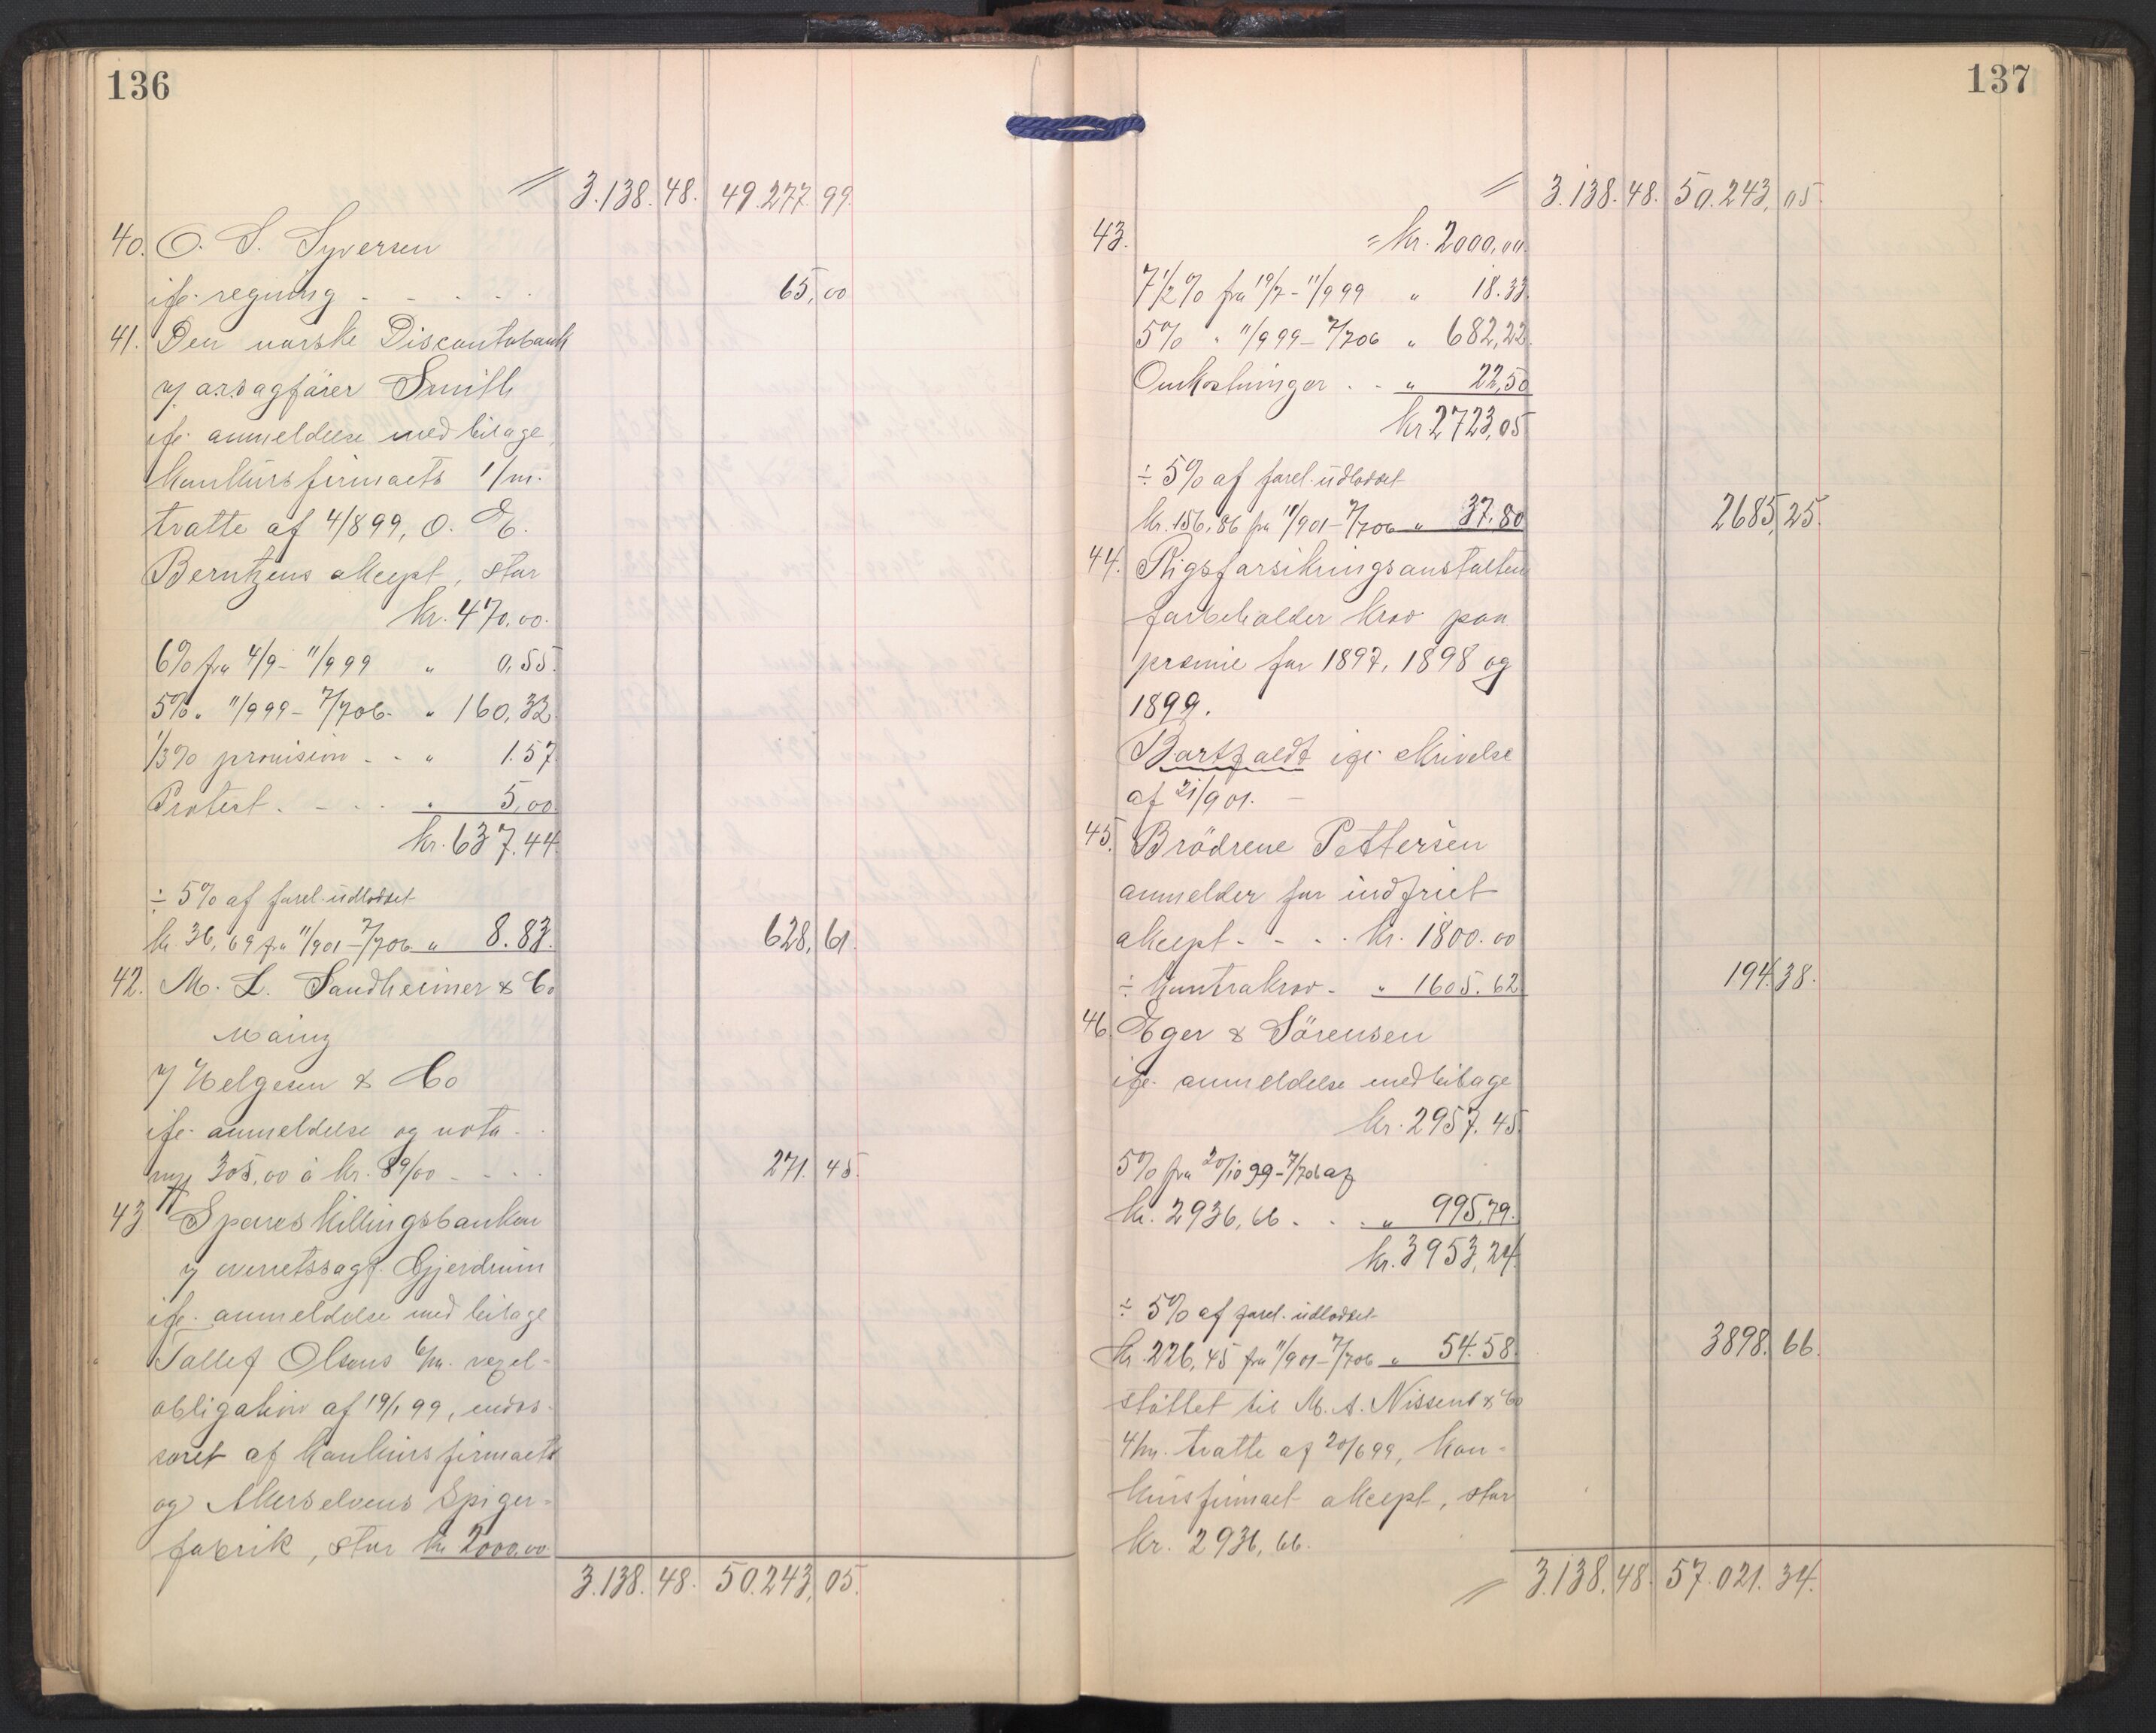 136
3.138.48. 49.277.99.
40. O. S. Syversen
ifø. regning - - - - 65,00
41. Den norske Discontobank
v/ o.r.sagfører Smith
ifø. anmeldelse med bilage,
konkursfirmaets 1/m.
tratte af 4/8 99, O. E.
Berntzens akcept, stor
kr. 470.00.
6% fra 4/9 - 11/9 99 " 0,55.
5% " 11/9 99 - 7/7 06. " 160,32
1/3% provision - - " 1.57
Protest - - - " 5,00.
kr. 637.44.
÷ 5% af forel. udloddet
kr. 36,69 fra 11/9 01 - 7/7 06 " 8.83. 628,61.
42. M. L. Sandheimer & Co
Mainz
v/ Helgesen & Co
ifø. anmeldelse og nota -
305,00 à kr. 89/00 - - - 271.45.
43. Spareskillingsbanken
v/ overretssagf. Gjerdrum
ifø. anmeldelse med bilage
Tallef Olsens 6/m. vexel-
obligation af 19/1 99, endos-
seret af konkursfirmaets
og Akerselvens Spiger-
fabrik, stor kr 2000.00.
3.138.48. 50.243,05.
137
3.138.48. 50.243,05.
43. = kr. 2000,00.
7 1/2% fra 19/7 - 11/9 99 " 18.33.
5% " 11/9 99 - 7/7 06 " 682,22.
Omkostninger - - " 22,50
kr 2723,05
÷ 5% af forel. udloddet
kr. 156,86 fra 11/9 01 - 7/7 06 " 37.80 2685,25.
44. Rigsforsikringsanstalten
forbeholder krav paa
præmie for 1897, 1898 og
1899.
Bortfaldt ifø. skrivelse
af 21/9 01. -
45. Brödrene Pettersen
anmelder for indfriet
akcept - - - kr. 1800.00
÷ kontrakrav - " 1605.62 194.38.
46. Eger & Sörensen
ifø. anmeldelse med bilage
kr. 2957.45.
5% fra 20/10 99 - 7/7 06 af
kr. 2936,66 - - " 995,79.
kr. 3953,24.
÷ 5% af forel. udloddet
kr. 226,45 fra 11/9 01 - 7/7 06 " 54.58. 3898.66.
støttet til M. A. Nissens & Co
4/m. tratte af 20/6 99, kon-
kursfirmaet akcept, stor
kr. 2936,66.
3.138.48. 57.021.34.